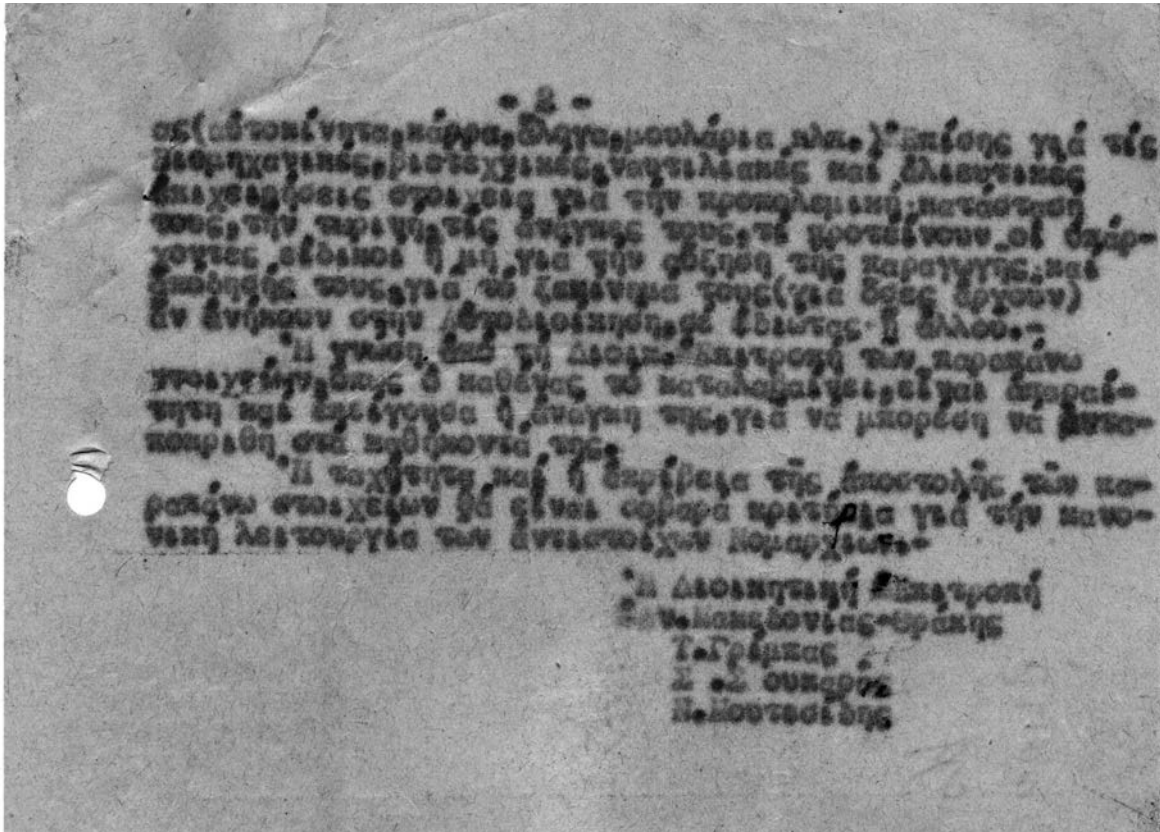 - 2 -
ας(αὐτοκίνητα,κάρρα,ἄλογα,μουλάρια κλπ.) Ἐπίσης γιά τίς
βιομηχανικές,βιοτεχνικές,ναυτιλιακές καί ἁλιευτικές
ἐπιχειρήσεις στοιχεῖα γιά τήν προπολεμική κατάσταση
τους,τήν τωρινή,τίς ἀνάγκες τους,τί προτείνουν οἱ ὑπάρ-
χοντες εἰδικοί ἤ μή γιά τήν αὔξηση τῆς παραγωγῆς καί
τους,γιά τό ξεκίνημά τους(γιά ὅσες ἀργοῦν)
ἄν ἀνήκουν στήν Αὐτοδιοίκηση,σέ ἰδιῶτες ἤ ἀλλοῦ.-
Ἡ γνώση ἀπό τή Διοικ. Ἐπιτροπή των παραπάνω
στοιχείων,ὅπως ὁ καθένας τό καταλαβαίνει,εἶναι ἀπαραί-
τητη καί ἐπείγουσα ἡ ἀνάγκη της,γιά να μπορέση νά ἀντα-
ποκριθῆ στά καθήκοντά της.
Ἡ ταχύτητα καί ἡ ἀκρίβεια τῆς ἀποστολῆς τῶν πα-
ραπάνω στοιχείων θά εἶναι σοβαρά κριτήρια γιά τήν κανο-
νική λειτουργία των ἀντιστοίχων Νομαρχιῶν.-
Ἡ Διοικητική Ἐπιτροπή
Ἀν.Μακεδονίας-Θράκης
Τ.Γρέμπας
Σ.Σουκάρας
Ν.Μουτεσίδης